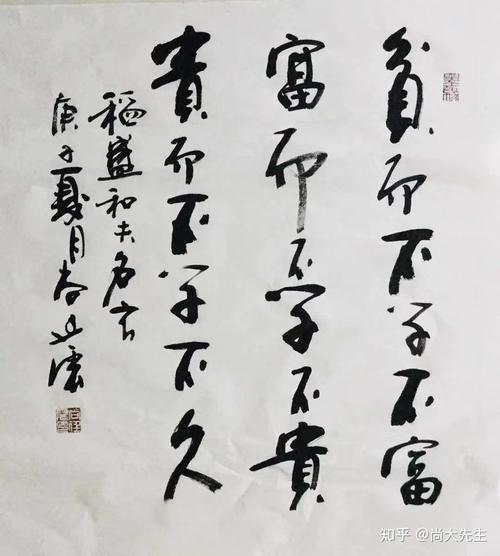 貧而不学不富
富而不学不貴
貴而不学不久
稻盛和夫名言
庚子夏月
知乎 @尚大先生